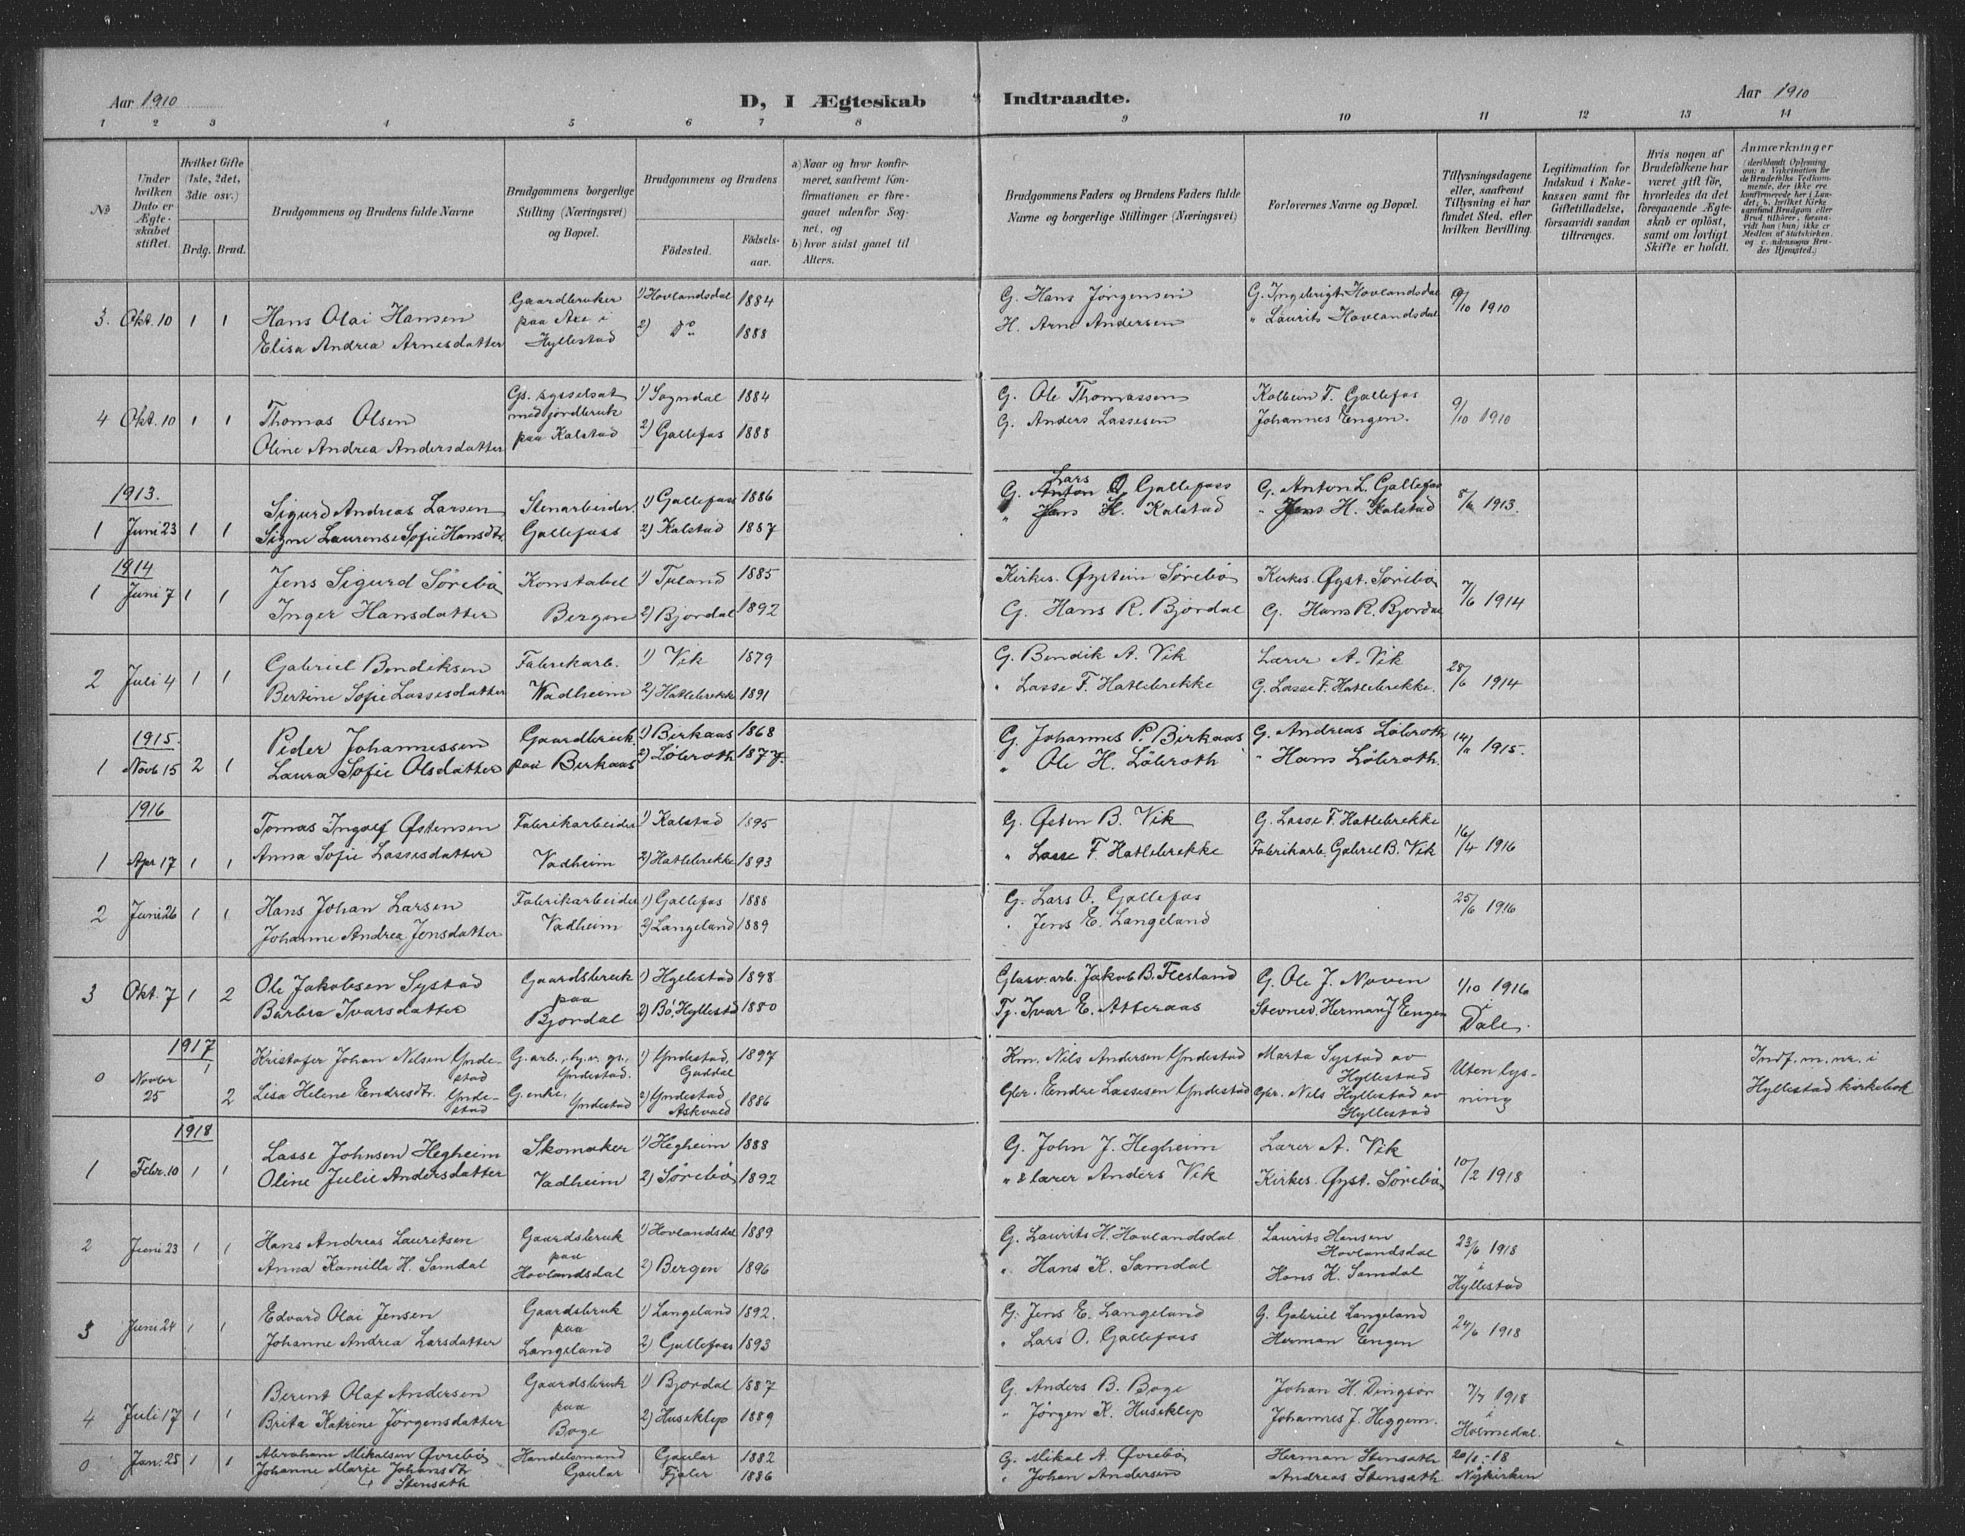 Aar 1910
D, I Ægteskab Indtraadte.
Aar 1910
1 2 3 4 5 6 7 8 9 10 11 12 13 14
No
Under hvilken Dato er Ægteskabet stiftet.
Hvilket Gifte (1ste, 2det, 3die osv.)
Brdg. Brud.
Brudgommens og Brudens fulde Navne
Brudgommens borgerlige Stilling (Næringsvei) og Bopæl.
Brudgommens og Brudens
Fødested.
Fødselsaar.
a) Naar og hvor konfirmeret, saafremt Konfirmationen er foregaaet udenfor Sognet, og
b) hvor sidst gaaet til Alters.
Brudgommens Faders og Brudens Faders fulde Navne og borgerlige Stillinger (Næringsvei)
Forlovernes Navne og Bopæl.
Tillysningsdagene eller, saafremt Tillysning ei har fundet Sted, efter hvilken Bevilling.
Legitimation for Indskud i Enkekassen samt for Giftetilladelse, forsaavidt saadan tiltrænges.
Hvis nogen af Brudefolkene har været gift før, hvorledes da det foregaaende Ægteskab er opløst, samt om lovligt Skifte er holdt.
Anmærkninger
3. Okt. 10 1 1 Hans Olai Hansen Gaardbruker 1) Hovlandsdal 1884 G. Hans Jørgensen G. Ingebrigt Hovlandsdal 9/10 1910
Elisa Andrea Arnesdatter paa Axe i Hyllestad 2) Do 1888 H. Arne Andersen " Laurits Hovlandsdal
4 Okt. 10 1 1 Thomas Olsen Gs. sysselsat 1) Sogndal 1884 G. Ole Thomassen Kolbein T. Gallefos 9/10 1910
Oline Andrea Andersdatter med jordbruk paa Kalstad 2) Gallefos 1888 G. Anders Lassesen Johannes Engen.
1913.
1 Juni 23 1 1 Sigurd Andreas Larsen Stenarbeider. 1) Gallefoss 1886 G. Lars O. Gallefoss G. Anton L. Gallefos 8/6 1913.
Signe Laurense Sofie Hansdtr. Gallefoss 2) Kalstad 1887 " Hans H. Kalstad " Jens H. Kalstad
1914
1 Juni 7 1 1 Jens Sigurd Sørebø Konstabel 1) Tuland 1885 Kirkes. Øystein Sørebø Kirkes. Øyst. Sørebø 7/6 1914
Inger Hansdatter Bergen 2) Bjordal 1892 G. Hans R. Bjordal G. Hans R. Bjordal
2 Juli 4 1 1 Gabriel Bendiksen Fabrikarb. 1) Vik 1879 G. Bendik A. Vik Lærer A. Vik 28/6 1914
Bertine Sofie Lassesdatter Vadheim 2) Hatlebrekk 1891 " Lasse F. Hatlebrekke G. Lasse F. Hatlebrekke.
1915.
1 Novb 15 2 1 Peder Johannessen Gaardbruk. 1) Birkaas 1868 G. Johannes P. Birkaas G. Andreas Løberoth 14/11 1915.
Laura Sofie Olsdatter paa Birkaas 2) Løberoth 1877. " Ole H. Løbroth " Hans Løbroth.
1916
1 Apr 17 1 1 Tomas Ingolf Østensen Fabrikarbeider 1) Kalstad 1895 G. Østen B. Vik G. Lasse F. Hatlebrekke 16/4 1916
Anna Sofie Lassesdatter Vadheim 2) Hatlebrekke 1893 " Lasse F. Hatlebrekke Fabrikarb. Gabriel B. Vik
2 Juni 26 1 1 Hans Johan Larsen Fabrikarbeider 1) Gallefos 1888 G. Lars O. Gallefos 25/6 1916
Johanne Andrea Jensdatter Vadheim 2) Langeland 1889 " Jens E. Langeland
3 Okt. 7 1 2 Ole Jakobsen Systad Gaardsbruk 1) Hyllestad 1898 Glasv. arb. Jakob B. Flesland G. Ole J. Noven 1/10 1916
Barbra Ivarsdatter paa Bjordal 2) Bø, Hyllestad 1880 Tj. Ivar E. Atteraas Stevned. Herman J Engen i Dale.
1917
0 Novbr 25 1 2 Kristofer Johan Nilsen Yndestad G. arb., Yndestad. 1) Yndestad, Guddal 1897 Km. Nils Andersen Yndestad Marta Systad av Hyllestad Uten lysning Indf. m. nr. i Hyllestad kirkebok
Lisa Helene Endresdtr. Yndestad G. enke, Yndestad 2) Yndestad Askvold 1886 Gbr. Endre Lassesen Yndestad Gbr. Nils Hyllestad av Hyllestad
1918
1 Febr. 10 1 1 Lasse Johnsen Hegheim Skomaker 1) Hegheim 1888 G. John J. Hegheim Lærer A. Vik 10/2 1918
Oline Julie Andersdatter Vadheim 2) Sørebø 1892 " & lærer Anders Vik Kirkes. Øyst. Sørebø
2 Juni 23 1 1 Hans Andreas Lauritsen Gaardsbruk 1) Hovlandsdal 1889 G. Laurits H. Hovlandsdal Laurits Hansen Hovlandsdal 23/6 1918
Anna Kamilla H. Samdal paa Hovlandsdal 2) Bergen 1896 " Hans K. Samdal Hans K. Samdal i Hyllestad
3 Juni 24 1 1 Edvard Olai Jensen Gaardsbruk 1) Langeland 1892. G. Jens E. Langeland G. Gabriel Langeland 24/6 1918
Johanne Andrea Larsdatter paa Langeland 2) Gallefoss 1893 " Lars O. Gallefoss Herman Engen
4 Juli 17 1 1 Berent Olaf Andersen Gaardsbruk 1) Bjordal 1887 G. Anders B. Boge Johan H. Dingsør 7/7 1918
Brita Katrine Jørgensdatter paa Boge 2) Huseklep 1889 " Jørgen K. Huseklep Johannes J. Heggem. i Holmedal.
0 Jan. 25 1 1 Abraham Mikalsen Øvrebø Handelsmand Gaular 1882 G. Mikal A. Øvrebø Herman Stensæth 20/1 - 18
Johanne Marie Johansdtr Stensæth Gaular Fjaler 1886 " Johan Andersen Andreas Stensæth Nykirken